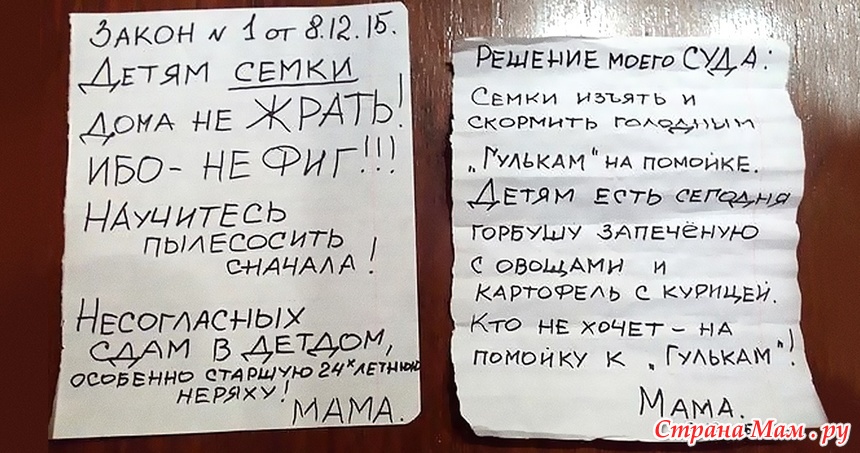 ЗАКОН N 1 от 8.12.15.
ДЕТЯМ СЕМКИ
ДОМА НЕ ЖРАТЬ!
ИБО - НЕ ФИГ!!!
НАУЧИТЕСЬ
ПЫЛЕСОСИТЬ
СНАЧАЛА!
НЕСОГЛАСНЫХ
СДАМ В ДЕТДОМ,
ОСОБЕННО СТАРШУЮ 24х ЛЕТНЮЮ
НЕРЯХУ!
МАМА.
РЕШЕНИЕ МОЕГО СУДА:
СЕМКИ ИЗЪЯТЬ И
СКОРМИТЬ ГОЛОДНЫМ
„ГУЛЬКАМ" НА ПОМОЙКЕ.
ДЕТЯМ ЕСТЬ СЕГОДНЯ
ГОРБУШУ ЗАПЕЧЁНУЮ
С ОВОЩАМИ И
КАРТОФЕЛЬ С КУРИЦЕЙ.
КТО НЕ ХОЧЕТ - НА
ПОМОЙКУ К „ГУЛЬКАМ"!
МАМА.
СтранаМам.ру